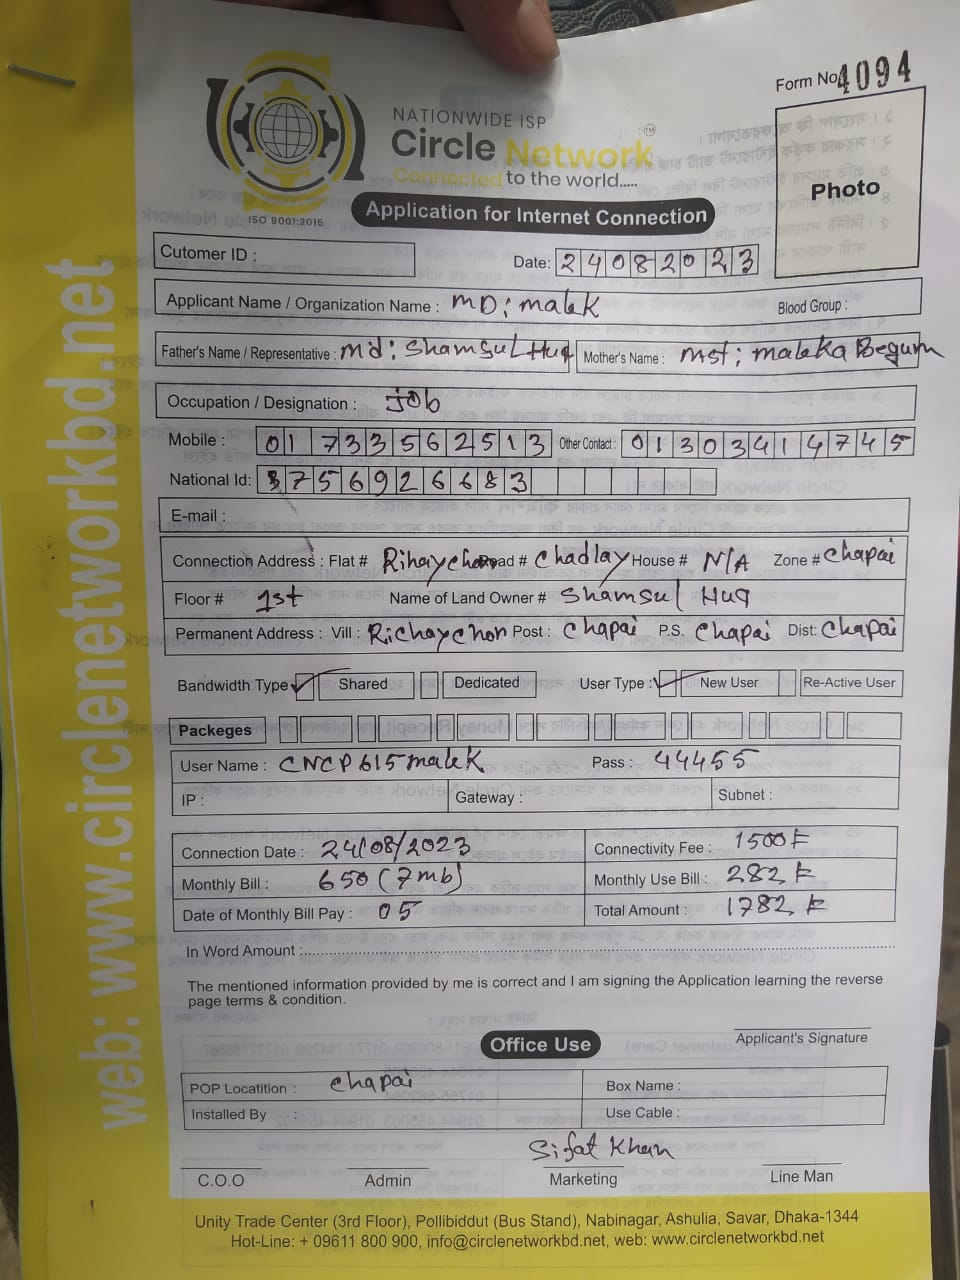 Form No 4094
NATIONWIDE ISP
Circle Network TM
Connected to the world.....
ISO 9001:2015
Application for Internet Connection
Photo
Cutomer ID :
Date: 24082023
Applicant Name / Organization Name : MD: malek
Blood Group :
Father's Name / Representative : Md: Shamsul Huq Mother's Name : Mst: maleka Begum
Occupation / Designation : Job
Mobile : 01733562513 Other Contact : 01303414745
National Id: 3756926683
E-mail :
Connection Address : Flat # Rihaychor Road # Chadlay House # N/A Zone # Chapai
Floor # 1st Name of Land Owner # Shamsul Huq
Permanent Address : Vill : Richaychor Post : Chapai P.S. Chapai Dist: Chapai
Bandwidth Type : ✓ Shared Dedicated User Type : ✓ New User Re-Active User
Packeges
User Name : CNCP615malek Pass : 44455
IP : Gateway : Subnet :
Connection Date : 24/08/2023 Connectivity Fee : 1500
Monthly Bill : 650 (7mb) Monthly Use Bill : 282
Date of Monthly Bill Pay : 05 Total Amount : 1782
In Word Amount :
The mentioned information provided by me is correct and I am signing the Application learning the reverse
page terms & condition.
Applicant's Signature
Office Use
POP Locatition : Chapai Box Name :
Installed By : Use Cable :
Sifat Khan
C.O.O Admin Marketing Line Man
Unity Trade Center (3rd Floor), Pollibiddut (Bus Stand), Nabinagar, Ashulia, Savar, Dhaka-1344
Hot-Line: + 09611 800 900, info@circlenetworkbd.net, web: www.circlenetworkbd.net
web: www.circlenetworkbd.net